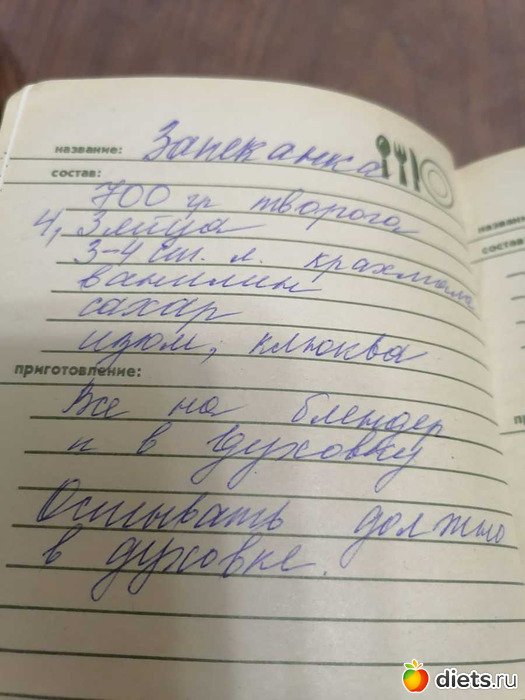 название: Запеканка
состав:
700 гр творога
4, 3 яйца
3-4 ст. л. крахмала
ванилин
сахар
изюм, клюква
приготовление:
Все на блендер
и в духовку
Остывать должно
в духовке.
назван
состав
diets.ru